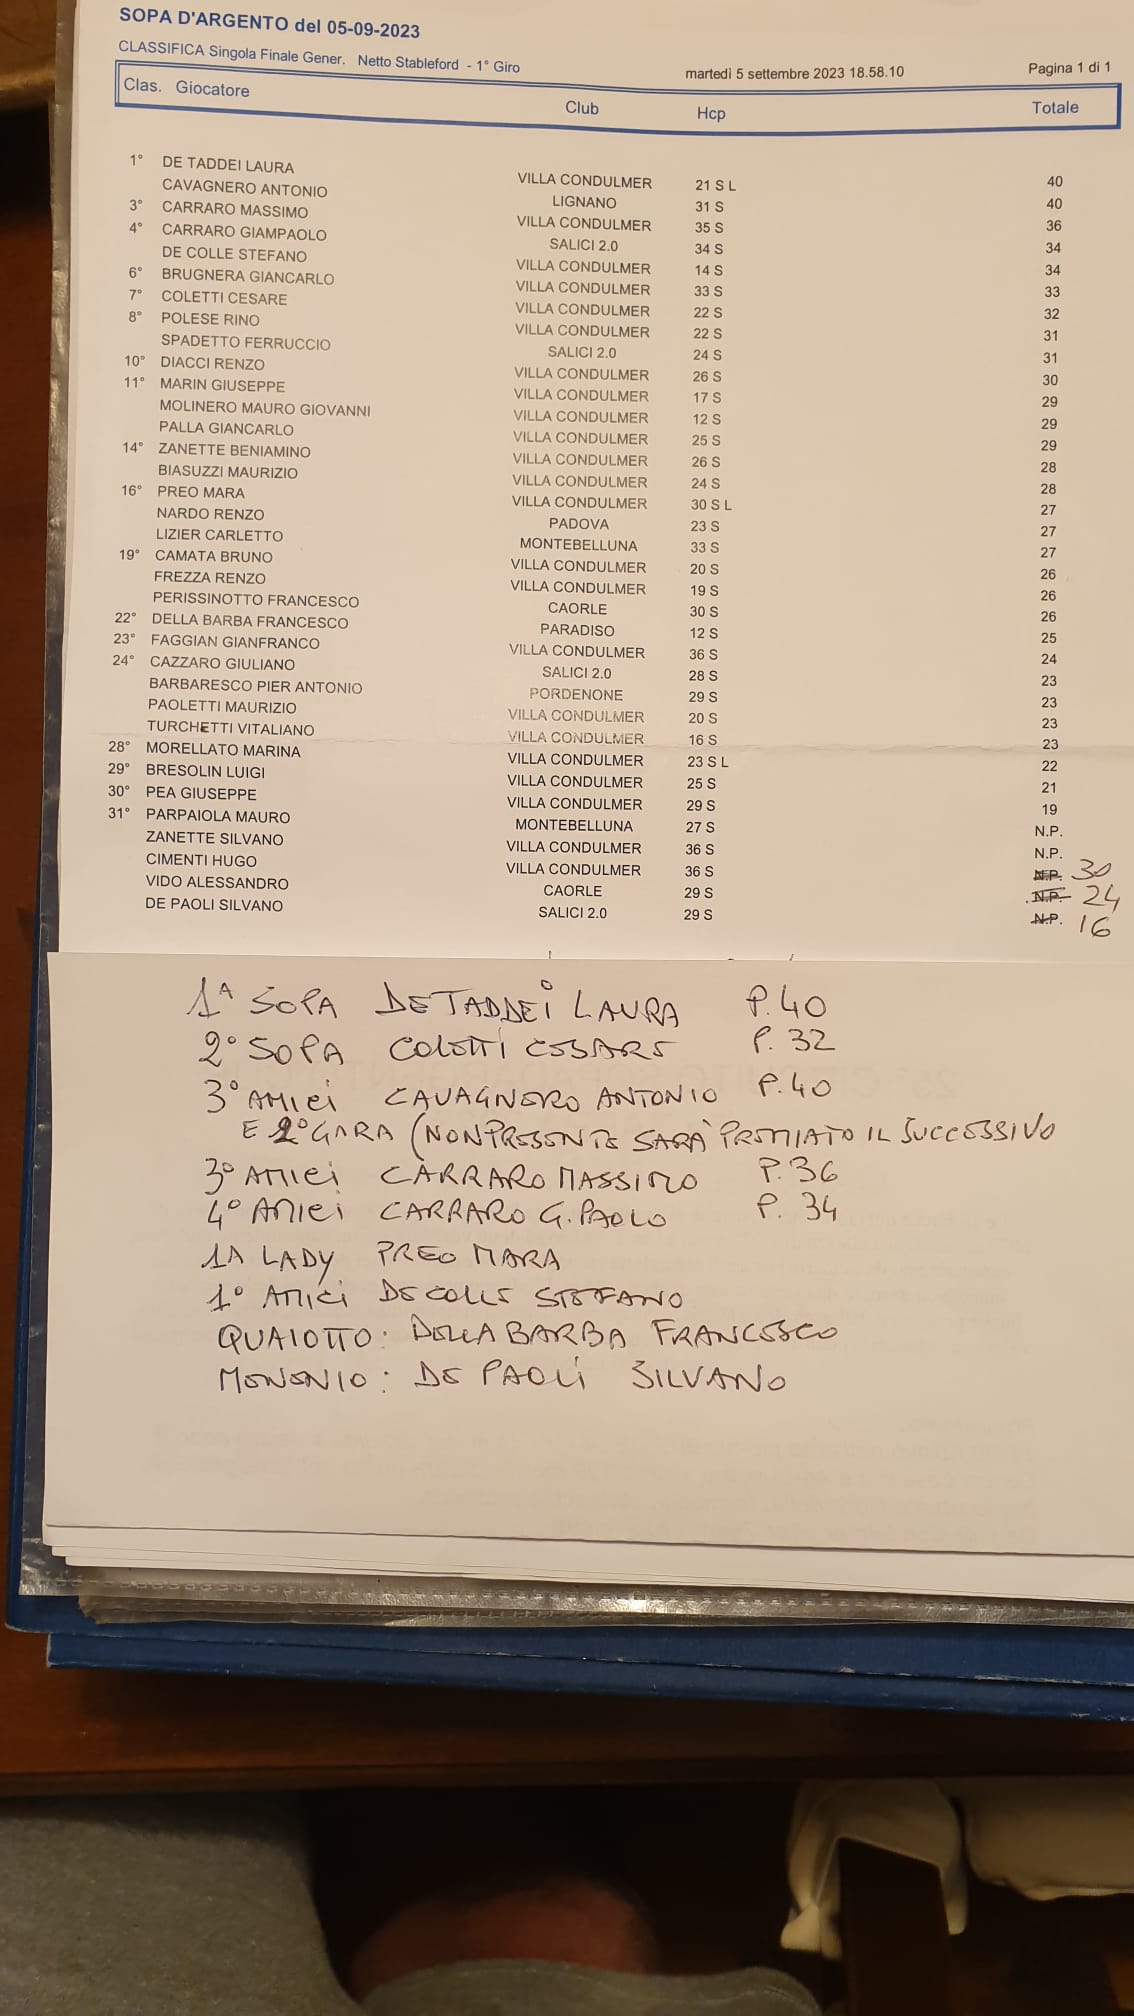 SOPA D'ARGENTO del 05-09-2023
CLASSIFICA Singola Finale Gener. Netto Stableford - 1° Giro martedì 5 settembre 2023 18.58.10 Pagina 1 di 1
Clas. Giocatore Club Hcp Totale
1° DE TADDEI LAURA VILLA CONDULMER 21 S L 40
CAVAGNERO ANTONIO LIGNANO 31 S 40
3° CARRARO MASSIMO VILLA CONDULMER 35 S 36
4° CARRARO GIAMPAOLO SALICI 2.0 34 S 34
DE COLLE STEFANO VILLA CONDULMER 14 S 34
6° BRUGNERA GIANCARLO VILLA CONDULMER 33 S 33
7° COLETTI CESARE VILLA CONDULMER 22 S 32
8° POLESE RINO VILLA CONDULMER 22 S 31
SPADETTO FERRUCCIO SALICI 2.0 24 S 31
10° DIACCI RENZO VILLA CONDULMER 26 S 30
11° MARIN GIUSEPPE VILLA CONDULMER 17 S 29
MOLINERO MAURO GIOVANNI VILLA CONDULMER 12 S 29
PALLA GIANCARLO VILLA CONDULMER 25 S 29
14° ZANETTE BENIAMINO VILLA CONDULMER 26 S 28
BIASUZZI MAURIZIO VILLA CONDULMER 24 S 28
16° PREO MARA VILLA CONDULMER 30 S L 27
NARDO RENZO PADOVA 23 S 27
LIZIER CARLETTO MONTEBELLUNA 33 S 27
19° CAMATA BRUNO VILLA CONDULMER 20 S 26
FREZZA RENZO VILLA CONDULMER 19 S 26
PERISSINOTTO FRANCESCO CAORLE 30 S 26
22° DELLA BARBA FRANCESCO PARADISO 12 S 25
23° FAGGIAN GIANFRANCO VILLA CONDULMER 36 S 24
24° CAZZARO GIULIANO SALICI 2.0 28 S 23
BARBARESCO PIER ANTONIO PORDENONE 29 S 23
PAOLETTI MAURIZIO VILLA CONDULMER 20 S 23
TURCHETTI VITALIANO VILLA CONDULMER 16 S 23
28° MORELLATO MARINA VILLA CONDULMER 23 S L 22
29° BRESOLIN LUIGI VILLA CONDULMER 25 S 21
30° PEA GIUSEPPE VILLA CONDULMER 29 S 19
31° PARPAIOLA MAURO MONTEBELLUNA 27 S N.P.
ZANETTE SILVANO VILLA CONDULMER 36 S N.P.
CIMENTI HUGO VILLA CONDULMER 36 S N.P. 30
VIDO ALESSANDRO CAORLE 29 S N.P. 24
DE PAOLI SILVANO SALICI 2.0 29 S N.P. 16
1A SOPA DE TADDEI LAURA P. 40
2° SOPA COLETTI CESARE P. 32
3° AMICI CAVAGNERO ANTONIO P. 40
E 2° GARA (NON PRESENTE SARÀ PREMIATO IL SUCCESSIVO
3° AMICI CARRARO MASSIMO P. 36
4° AMICI CARRARO G. PAOLO P. 34
1A LADY PREO MARA
1° AMICI DE COLLE STEFANO
QUAIOTTO: DELLA BARBA FRANCESCO
MONONIO: DE PAOLI SILVANO